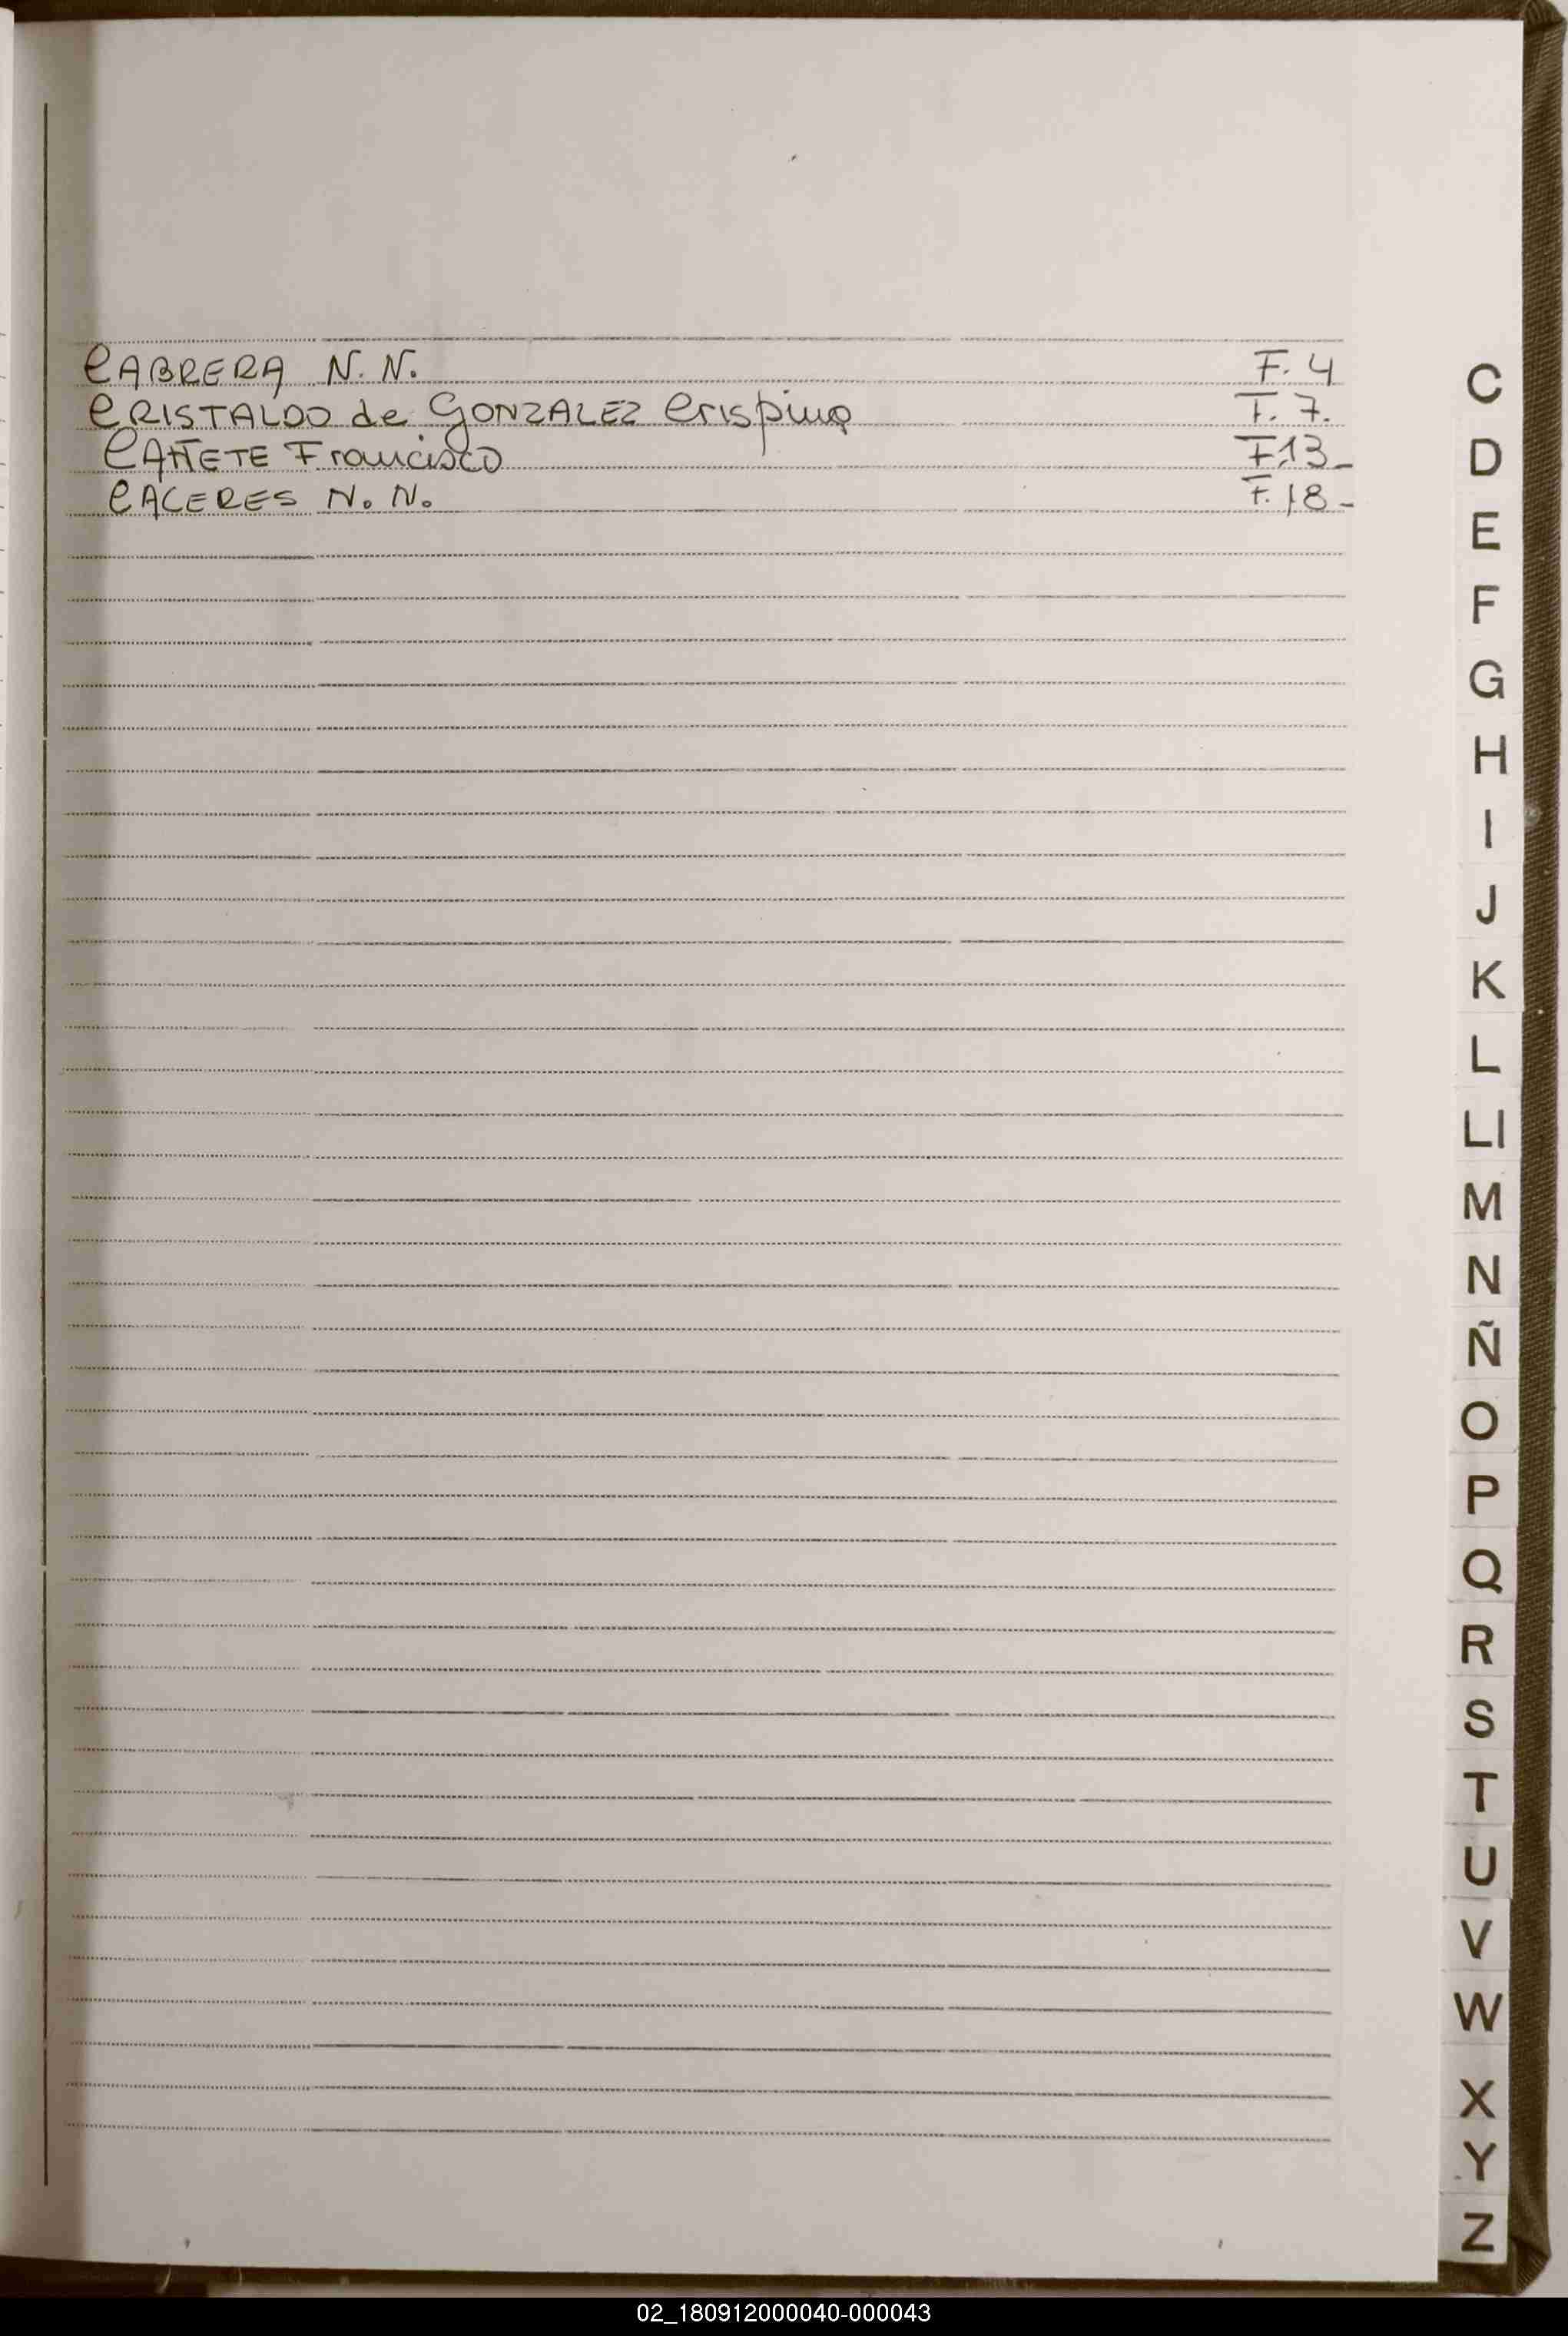 CABRERA N. N. F. 4
CRISTALDO de GONZALEZ Crispina F. 7.
CAÑETE Francisco F.13_
CACERES N. N. F. 18-
C
D
E
F
G
H
I
J
K
L
Ll
M
N
Ñ
O
P
Q
R
S
T
U
V
W
X
Y
Z
02_180912000040-000043